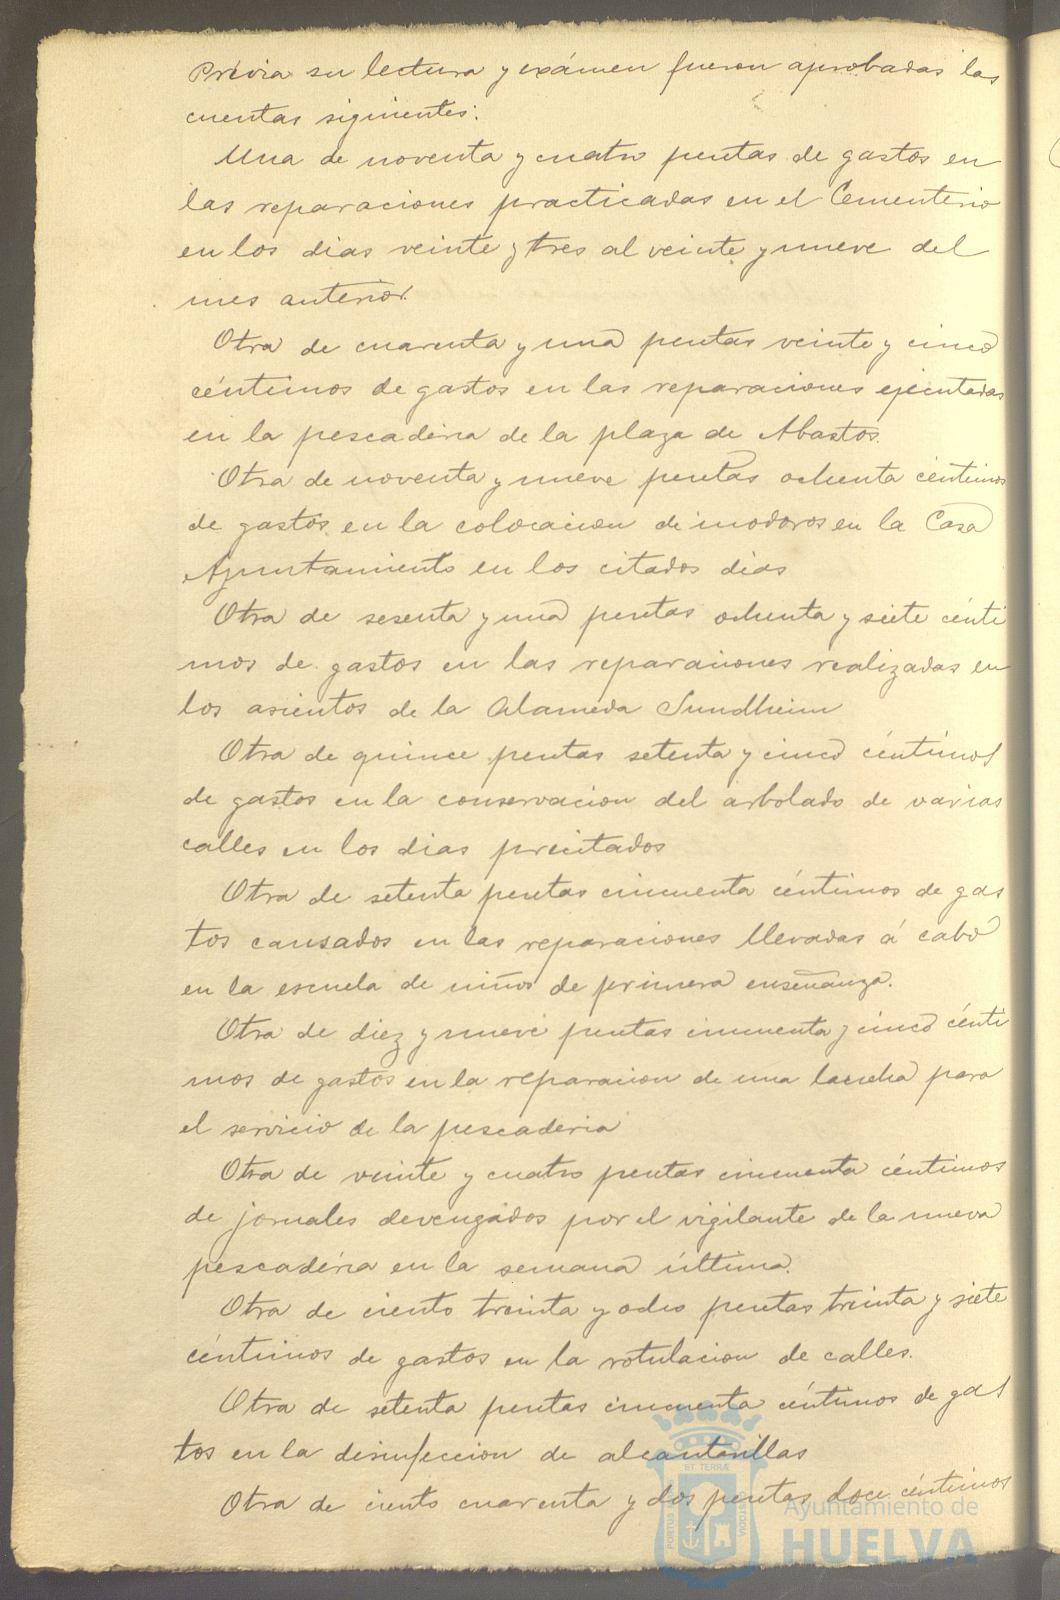 Prévia su lectura y exámen fueron aprobadas las
cuentas siguientes:
Una de noventa y cuatro pesetas de gastos en
las reparaciones practicadas en el Cementerio
en los dias veinte y tres al veinte y nueve del
mes anterior.
Otra de cuarenta y una pesetas veinte y cinco
céntimos de gastos en las reparaciones ejecutadas
en la pescaderia de la plaza de Abastos.
Otra de noventa y nueve pesetas ochenta céntimos
de gastos en la colocacion de inodoros en la Casa
Ayuntamiento en los citados dias
Otra de sesenta y una pesetas ochenta y siete cénti
mos de gastos en las reparaciones realizadas en
los asientos de la Alameda Sundheim
Otra de quince pesetas setenta y cinco céntimos
de gastos en la conservacion del arbolado de varias
calles en los dias precitados
Otra de setenta pesetas cincuenta céntimos de gas
tos causados en las reparaciones llevadas á cabo
en la escuela de niños de primera enseñanza.
Otra de diez y nueve pesetas cincuenta y cinco cénti
mos de gastos en la reparacion de una lancha para
el servicio de la pescaderia
Otra de veinte y cuatro pesetas cincuenta céntimos
de jornales devengados por el vigilante de la nueva
pescadéria en la semana última.
Otra de ciento treinta y ocho pesetas treinta y siete
céntimos de gastos en la rotulacion de calles.
Otra de setenta pesetas cincuenta céntimos de gas
tos en la desinfeccion de alcantarillas
Otra de ciento cuarenta y dos pesetas doce céntimos
ET TERRÆ
PORTUS
CUSTODIA
Ayuntamiento de
HUELVA